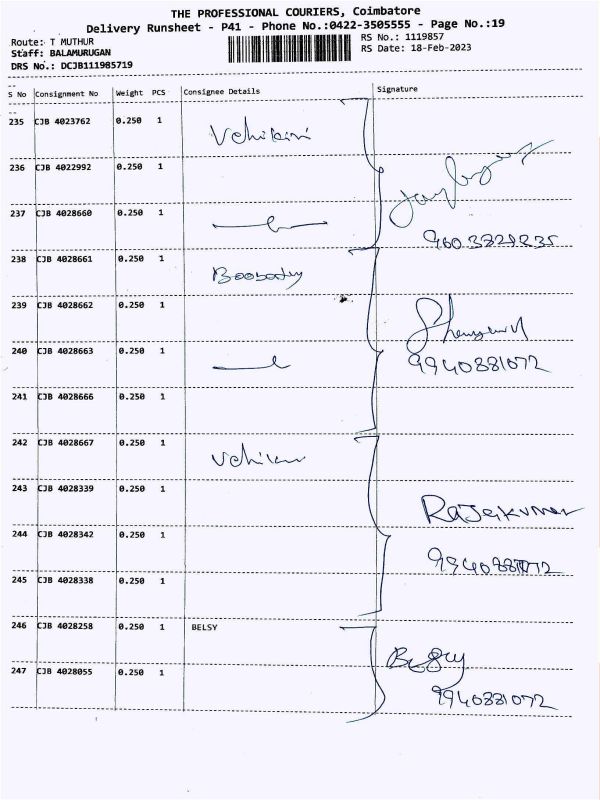 THE PROFESSIONAL COURIERS, Coimbatore
Delivery Runsheet - P41 - Phone No.:0422-3505555 - Page No.:19
Route: T MUTHUR
RS No.: 1119857
Staff: BALAMURUGAN
RS Date: 18-Feb-2023
DRS No.: DCJB111985719
S No Consignment No Weight PCS Consignee Details Signature
235 CJB 4023762 0.250 1
236 CJB 4022992 0.250 1
237 CJB 4028660 0.250 1
238 CJB 4028661 0.250 1
239 CJB 4028662 0.250 1
240 CJB 4028663 0.250 1
9940881072
241 CJB 4028666 0.250 1
242 CJB 4028667 0.250 1
243 CJB 4028339 0.250 1
Rajeikumar
244 CJB 4028342 0.250 1
245 CJB 4028338 0.250 1
246 CJB 4028258 0.250 1 BELSY
247 CJB 4028055 0.250 1
9940881072